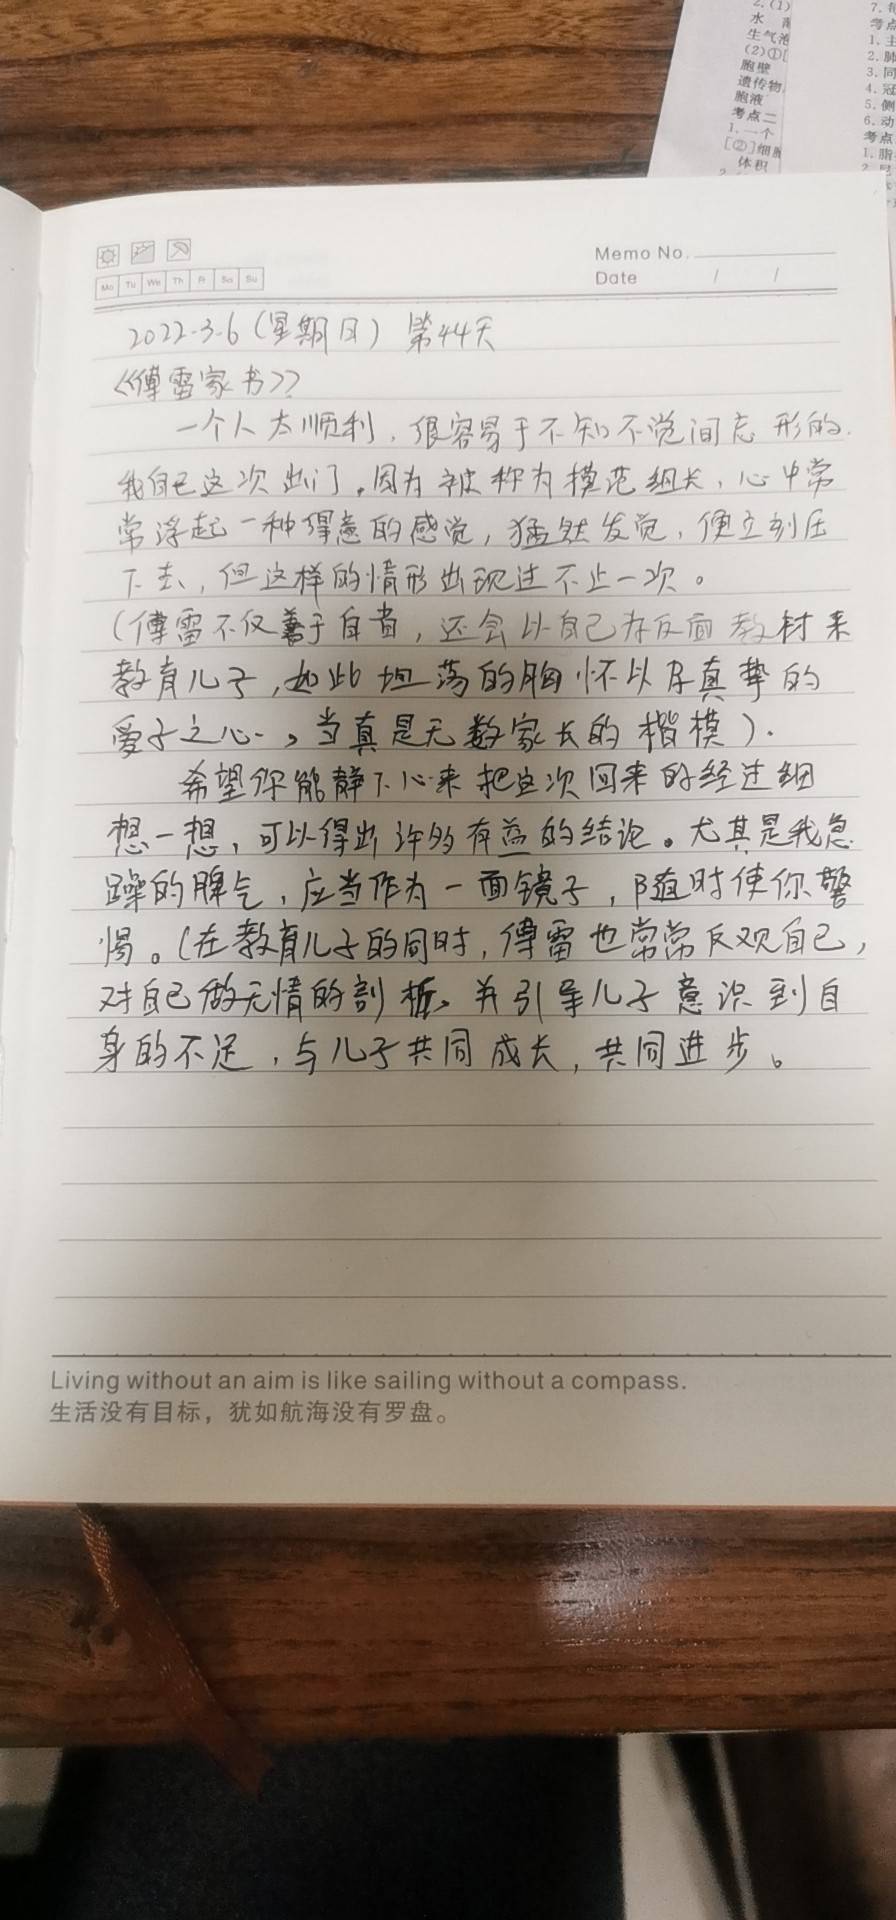 2.(1)
水
生气泡
(2)①[
胞壁
遗传物
胞液
考点二
1.一个
[②]细胞
体积
7.
考点
1.主
2.肺
3.同
4.冠
5.侧
6.动
考点
1.脂
Mo Tu We Th Fr Sa Su
Memo No.
Date / /
2022-3-6(星期日) 第44天
《傅雷家书》
一个人太顺利,很容易于不知不觉间忘形的.
我自己这次出门,因为被称为模范组长,心中常
常浮起一种得意的感觉,猛然发觉,便立刻压
下去,但这样的情形出现过不止一次。
(傅雷不仅善于自省,还会以自己为反面教材来
教育儿子,如此坦荡的胸怀以及真挚的
爱子之心,当真是无数家长的楷模).
希望你能静下心来把这次回来的经过细
想一想,可以得出许多有益的结论。尤其是我急
躁的脾气,应当作为一面镜子,随时使你警
惕。(在教育儿子的同时,傅雷也常常反观自己,
对自己做无情的剖析,并引导儿子意识到自
身的不足,与儿子共同成长,共同进步。
Living without an aim is like sailing without a compass.
生活没有目标，犹如航海没有罗盘。